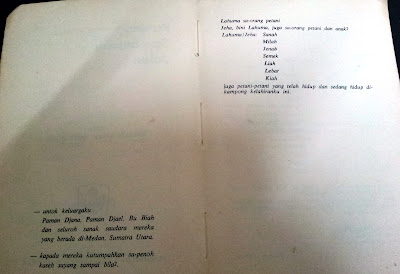 — untok keluargaku
Paman Djana, Paman Djael, Bu Biah
dan seluroh sanak saudara mereka
yang berada di-Medan, Sumatra Utara.
— kapada mereka kutumpahkan sa-penoh
kaseh sayang sampai bila2.
Lahuma sa-orang petani
Jeha, bini Lahuma, juga sa-orang petani dan anak2
Lahuma/Jeha: Sanah
Milah
Jenab
Semek
Liah
Lebar
Kiah
juga petani-petani yang telah hidup dan sedang hidup di-
kampong kelahiranku ini.